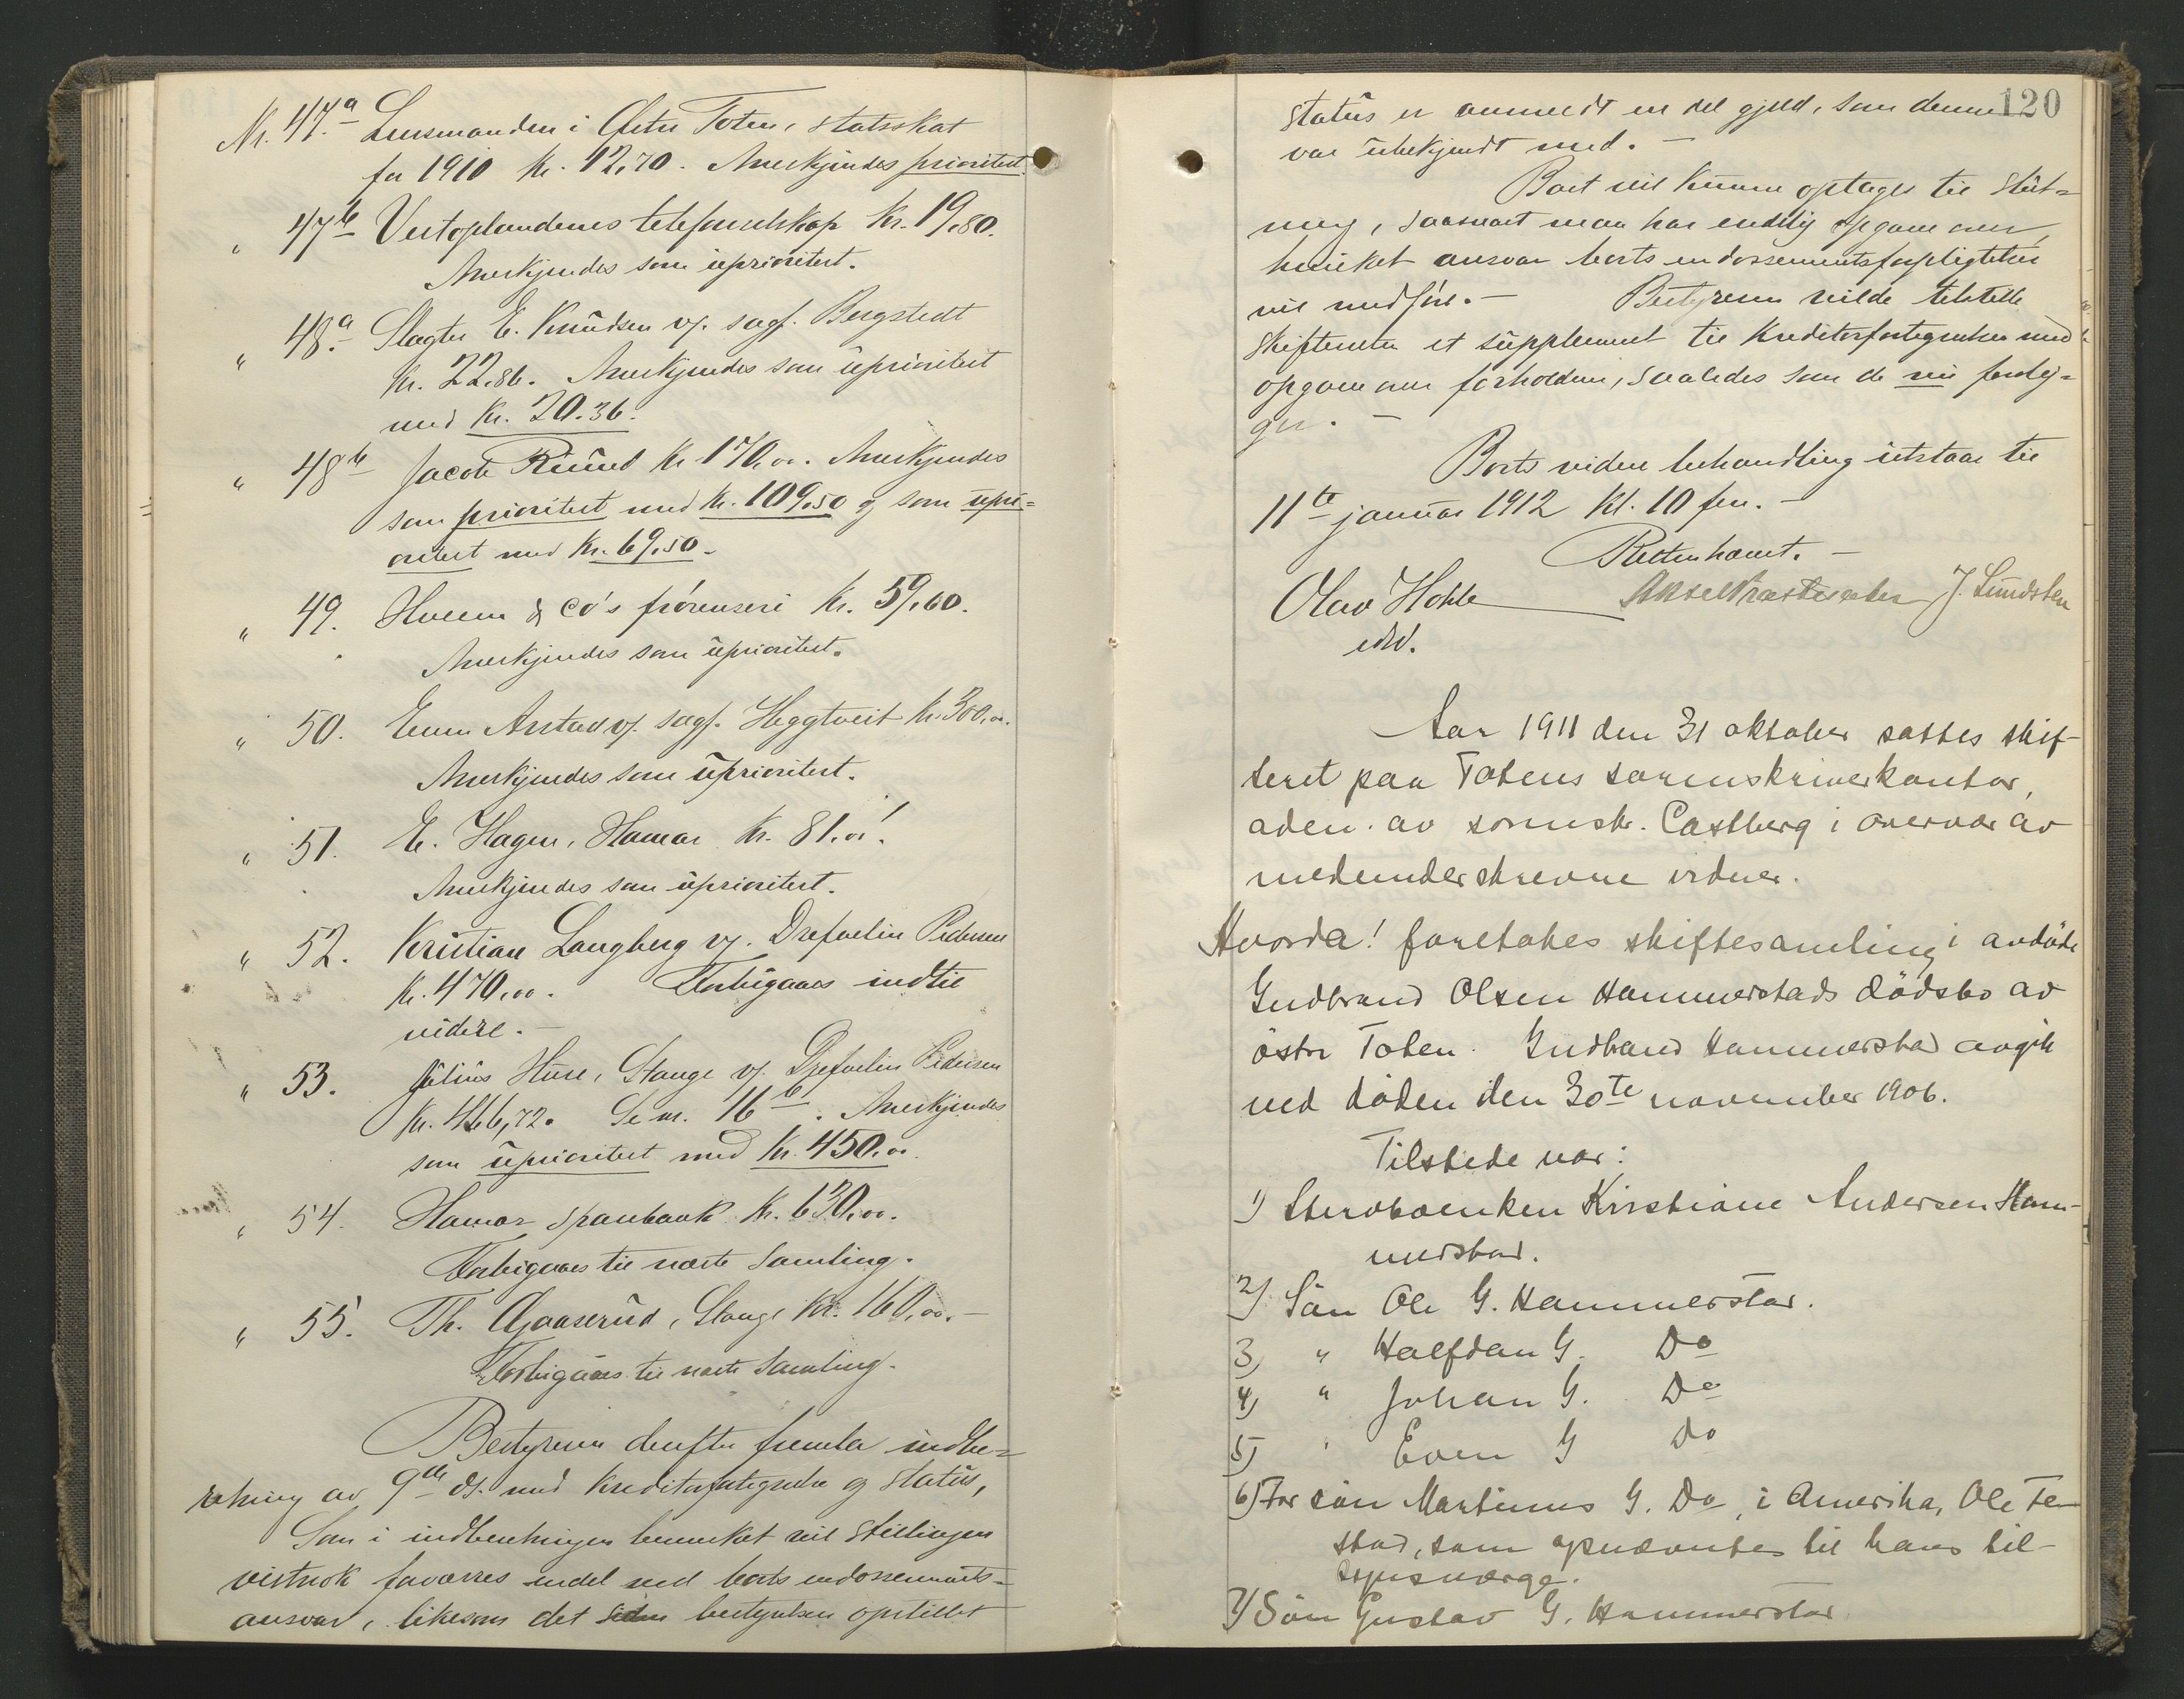 Nr. 47.a Lensmanden i Østre Toten, statsskat
for 1910 kr. 12,70. Anerkjendes prioritert.
" 47b Vestoplandenes telefonselskap kr. 19,80.
Anerkjendes som uprioritert.
" 48.a Slagter E. Knudsen v/ sagf. Bergstedt
kr. 22,86. Anerkjendes som uprioritert
med kr. 20.36.
" 48b Jacob kr. 170,00. Anerkjendes
som prioritert med kr. 109,50 og som upri-
oritert med kr. 69,50.
" 49. & Co's kr. 59,60.
Anerkjendes som uprioritert.
" 50. Even Arstad v/ sagf. Heggtveit kr. 300,00.
Anerkjendes som uprioritert.
" 51. E. Hagen, Hamar kr. 81,01.
Anerkjendes som uprioritert.
" 52. Kristian Langberg v/ Drefvelin Pedersen
kr. 470,00. Forbigaaes indtil
videre.
" 53. Julius Huse, Stange v/ Drefvelin Pedersen
kr. 466,72. Se nr. 16b. Anerkjendes
som uprioritert med kr. 450,00.
" 54. Hamar sparebank kr. 630,00.
Forbigaaes til næste samling.
" 55. Th. Gjaaserud, Stange kr. 160,00.
Forbigaaes til næste samling.
Bestyreren derefter fremla indbe-
retning av 9de ds. med kreditorfortegnelse og status,
Som i indberetningen bemerket vil stillingen
vistnok forværres endel ved boets endossements-
ansvar, likesom det siden bestyrelsen opstillet
120
status er anmeldt en del gjæld, som denne
var ubekjendt med.
Boet vil kunne optages til slut-
ning, saasnart man har endelig opgave over,
hvilket ansvar boets endossementsforpligtelser
vil medføre. Bestyreren vilde tilstille
skifteretten et supplement til kreditorfortegnelsen med
opgave over forholdene, saaledes som de nu forelig-
ger.
Boets videre behandling utstaar til
11te januar 1912 kl. 10 fm.
Retten hævet.
Olav Hohle J. Lundsten
edsv.
Aar 1911 den 31 oktober sattes skif-
teret paa Totens sorenskriverkontor,
adm. av sorensk. Castberg i overvær av
medunderskrevne vidner.
Hvorda! foretokes skiftesamling i avdöde
Gudbrand Olsen Hammerstads dödsbo av
östre Toten. Gudbrand Hammerstad avgik
ved döden den 30te november 1906.
Tilstede var:
1) Stervboenken Kristiane Andersen Ham-
merstad.
2) Sön Ole G. Hammerstad.
3) " Halfdan G. Do
4) " Johan G. Do
5) " Even G Do
6) For sön Martinus G. Do, i Amerika, Ole Te
stad, som opnævntes til hans til-
synsværge.
7) Sön Gustav G. Hammerstad